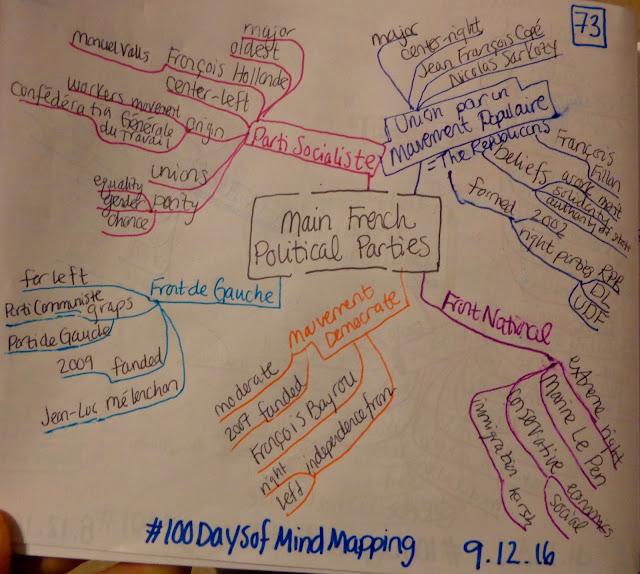 73
Main French
Political Parties
Parti Socialiste
major
oldest
François Hollande
Manuel Valls
center-left
origin
workers movement
Confédératia Générale
du Travail
unions
parity
equality
gender
chance
Union par un
Mavement Populaire
= The Republicans
major
center-right
Jean François Copé
Nicolas Sarkozy
François
Fillon
beliefs
work
merit
solidarity
authority of state
formed
2002
right parties
RPR
DL
UDF
Front de Gauche
far left
graps
Parti Communiste
Parti de Gauche
2009 fanded
Jean-Luc Mélenchon
Mauvement
Democrate
moderate
2007 funded
François Bayrou
independence fran
right
left
Front National
extreme right
Marine Le Pen
conservative
economics
social
immigration harsh
#100DaysofMindMapping
9.12.16